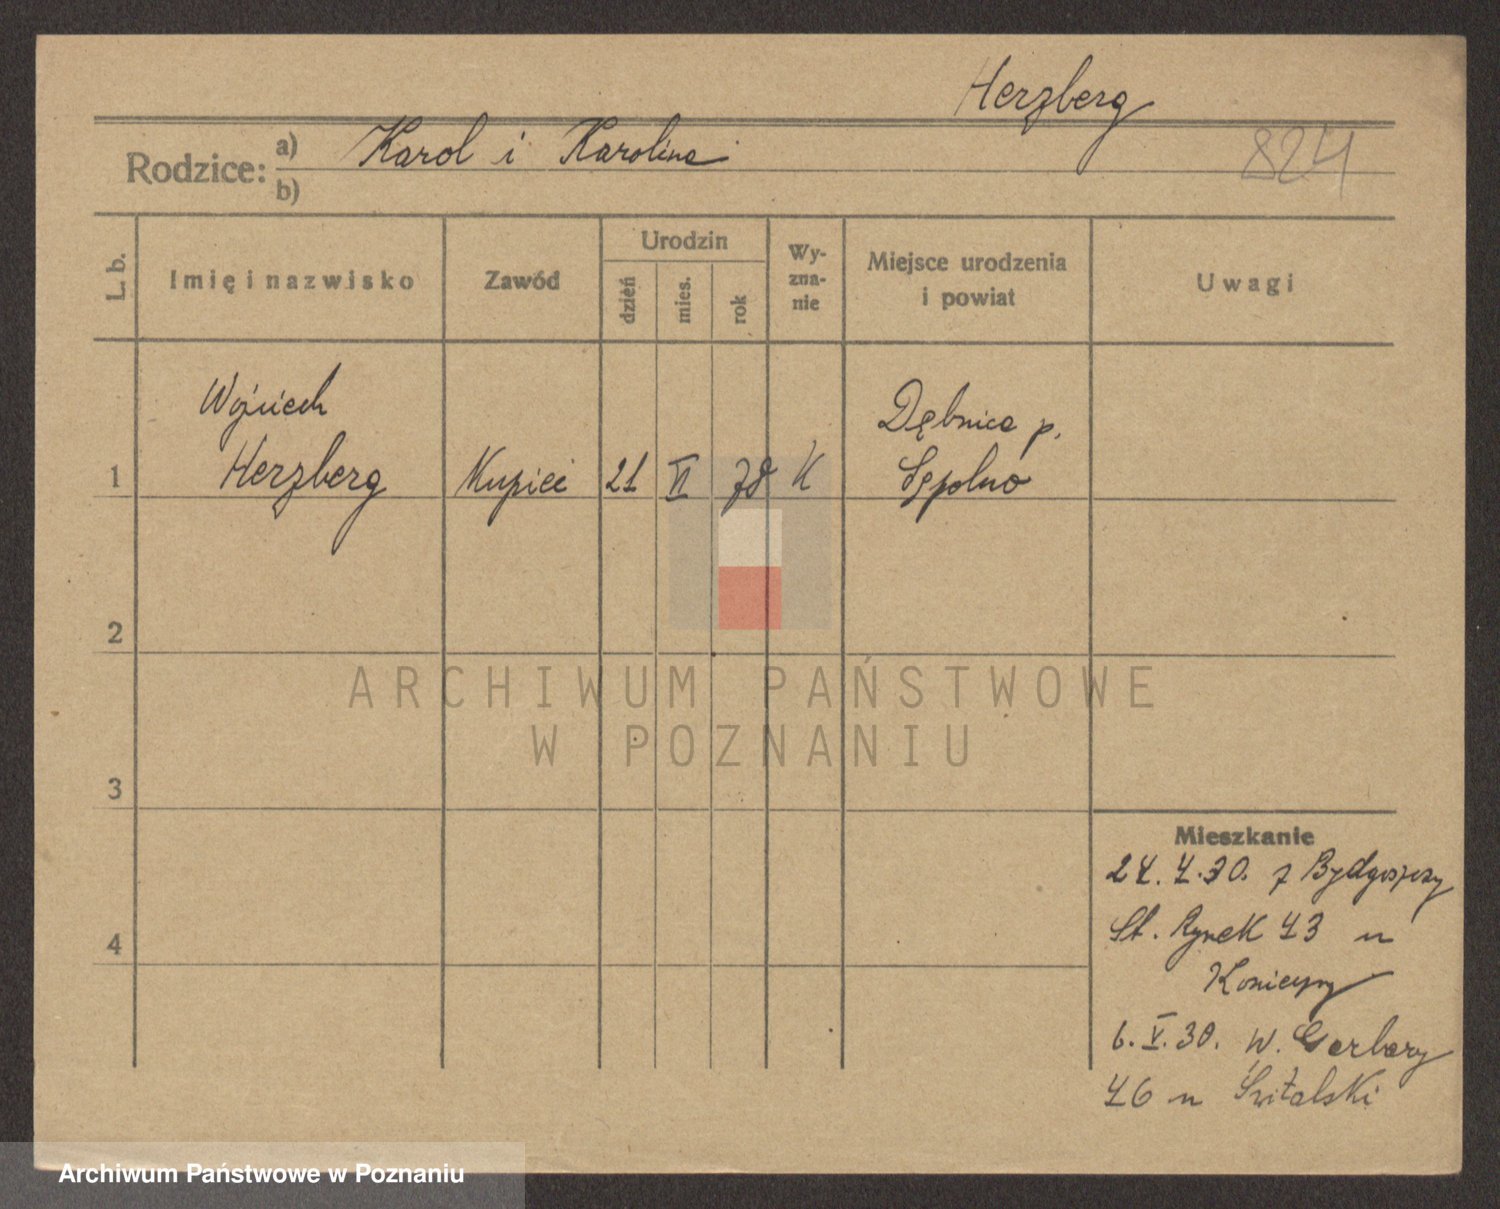 Herzberg
Rodzice: a) Karol i Karolina
b)
824
L. b.
Imię i nazwisko
Zawód
Urodzin
dzień
mies.
rok
Wy-
zna-
nie
Miejsce urodzenia
i powiat
Uwagi
1
Wojciech
Herzberg
Kupiec
21
VI
78
K
Dębnica p.
Sępolno
2
ARCHIWUM PAŃSTWOWE
W POZNANIU
3
4
Mieszkanie
24. 4. 30. z Bydgoszczy
St. Rynek 43 u
6. V. 30. W. Garbary
46 u Świtalski
Archiwum Państwowe w Poznaniu